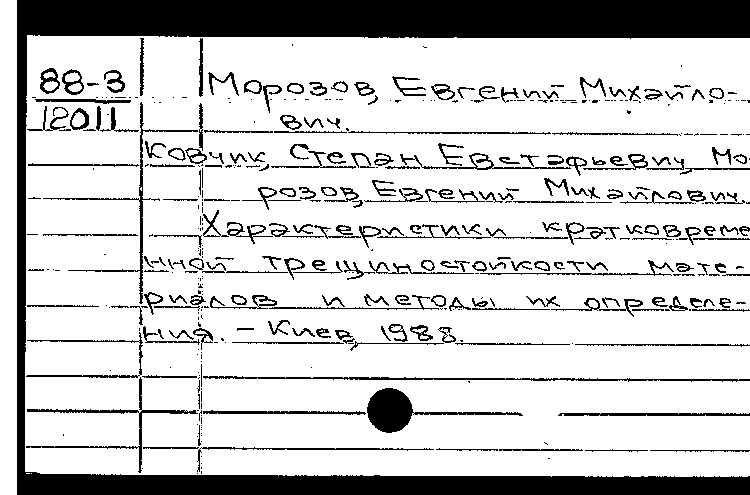 88-3
12011
Морозов, Евгений Михайло-
вич.
Ковчик, Степан Евстафьевич, Мо-
розов, Евгений Михайлович.
Характеристики кратковреме
нной трещиностойкости мате-
риалов и методы их определе-
ния. – Киев, 1988.